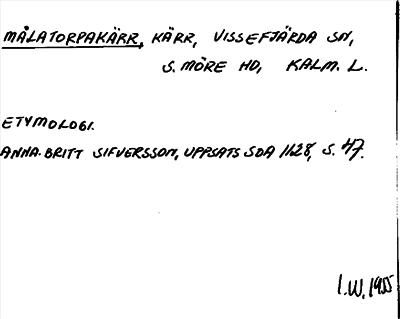 MÅLATORPAKÄRR, KÄRR, VISSEFJÄRDA SN,
S. MÖRE HD, KALM. L.
ETYMOLOGI.
ANNA-BRITT SIFVERSSON, UPPSATS SOA 1128, S. 47.
I.W. 1955